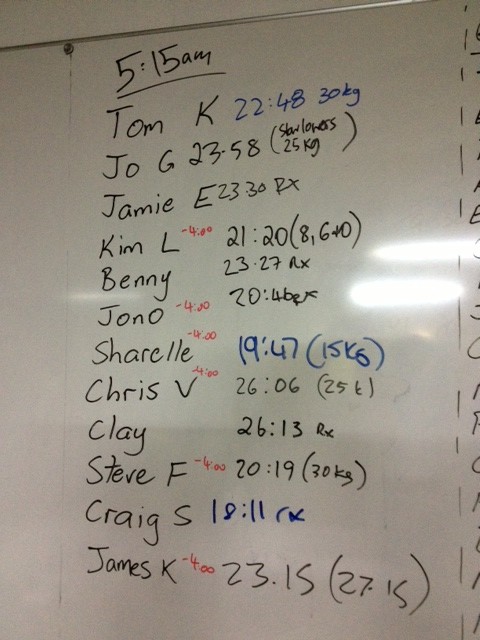 5:15am
Tom K 22:48 30kg
Jo G 23.58 (Slow lowers 25kg)
Jamie E 23.30 Rx
Kim L -4:00 21:20 (8, 6
Benny 23.27 Rx
Jono -4:00 20:46
Sharelle -4:00 19:47 (15kg)
Chris V -4:00 26:06 (25
Clay 26:13 Rx
Steve F -4:00 20:19 (30kg)
Craig S 18:11 rx
James K -4:00 23.15 (27.15)